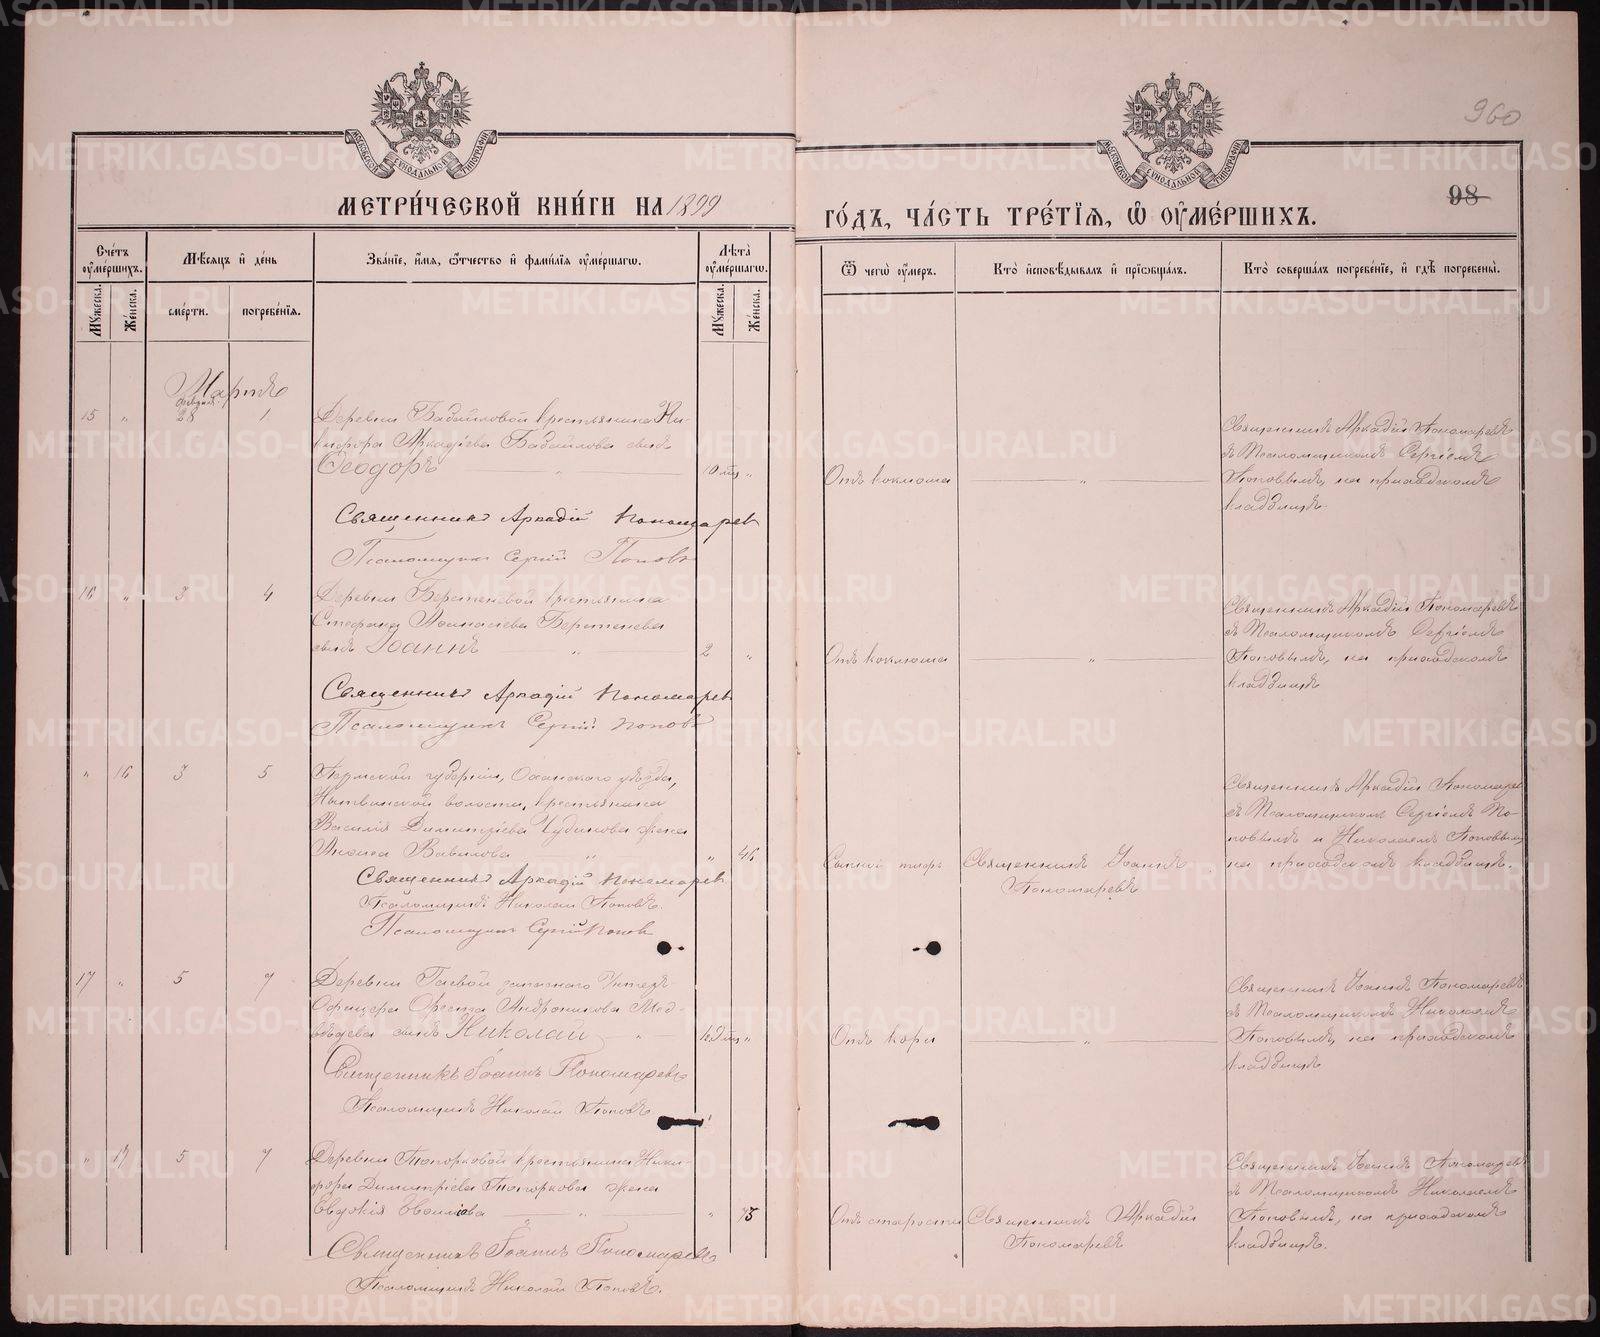 960
98
МЕТРИ́ЧЕСКОЙ КНИ́ГИ НА 1899
ГО́ДЪ, ЧА́СТЬ ТРЕ́ТІѦ, Ѡ҆ ОУ҆МЕ́РШИХЪ.
Сче́тъ оу҆ме́ршихъ.
Мѣ́сяцъ и҆ де́нь
Зва́ніе, и҆́мя, ѻ҆́тчество и҆ фами́лія оу҆ме́ршагѡ.
Лѣ́та оу҆ме́ршагѡ.
Ѿ чегѡ̀ оу҆́меръ.
Кто̀ и҆сповѣ́дывалъ и҆ прїѡбща́лъ.
Кто̀ соверша́лъ погребе́ніе, и҆ гдѣ̀ погребены̀.
Мꙋ́жеска.
Же́нска.
сме́рти.
погребе́нія.
Мꙋ́жеска.
Же́нска.
Мартъ
15 " 28 1 Деревни Бабайловой крестьянина Ни-
кифора Аркадіева Бабайлова сынъ
Ѳеодоръ 10 мц "
Отъ коклюша "
Священникъ Аркадій Пономаревъ
съ Псаломщикомъ Сергіемъ
Поповымъ, на приходскомъ
кладбищѣ.
Священникъ Аркадій Пономарев
Псаломщикъ Сергій Поповъ
16 " 3 4 Деревни Берстеневой крестьянина
Стефана Аѳанасіева Берстенева
сынъ Іоаннъ " 2 "
Отъ коклюша "
Священникъ Аркадій Пономаревъ
съ Псаломщикомъ Сергіемъ
Поповымъ, на приходскомъ
кладбищѣ
Священникъ Аркадій Пономарев
Псаломщикъ Сергій Поповъ
" 16 3 5 Пермской губерніи, Оханскаго уѣзда,
Нытвинской волости, крестьянина
Василія Димитріева Чудинова жена
Вавилова " " 46
Сыпной тифъ
Священникъ Іоаннъ
Пономаревъ
Священникъ Аркадій Пономарев
съ Псаломщикомъ Сергіемъ По-
повымъ и Николаемъ Поповымъ
на приходскомъ кладбищѣ.
Священникъ Аркадій Пономарев
Псаломщикъ Николай Поповъ.
Псаломщикъ Сергій Попов
17 " 5 7 Деревни Гаевой запаснаго Унтеръ-
Офицера Ореста Андроникова Мед-
вѣдева сынъ Николай " "
Отъ кори "
Священникъ Іоаннъ Пономаревъ
съ Псаломщикомъ Николаемъ
Поповымъ, на приходскомъ
кладбищѣ
Священникъ Іоаннъ Пономаревъ
Псаломщикъ Николай Поповъ
" 17 5 7 Деревни Топорковой крестьянина Ники-
фора Димитріева Топоркова жена
Евдокія " " 75
Отъ старости
Священникъ Аркадій
Пономаревъ
Священникъ Іоаннъ Пономаревъ
съ Псаломщикомъ Николаемъ
Поповымъ, на приходскомъ
кладбищѣ.
Священникъ Іоаннъ Пономаревъ
Псаломщикъ Николай Поповъ.
METRIKI.GASO-URAL.RU